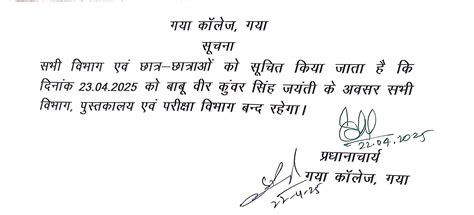 गया कॉलेज, गया
सूचना
सभी विभाग एवं छात्र-छात्राओं को सूचित किया जाता है कि
दिनांक 23.04.2025 को बाबू वीर कुंवर सिंह जयंती के अवसर सभी
विभाग, पुस्तकालय एवं परीक्षा विभाग बन्द रहेगा।
22.04.2025
प्रधानाचार्य
गया कॉलेज, गया
22-4-25